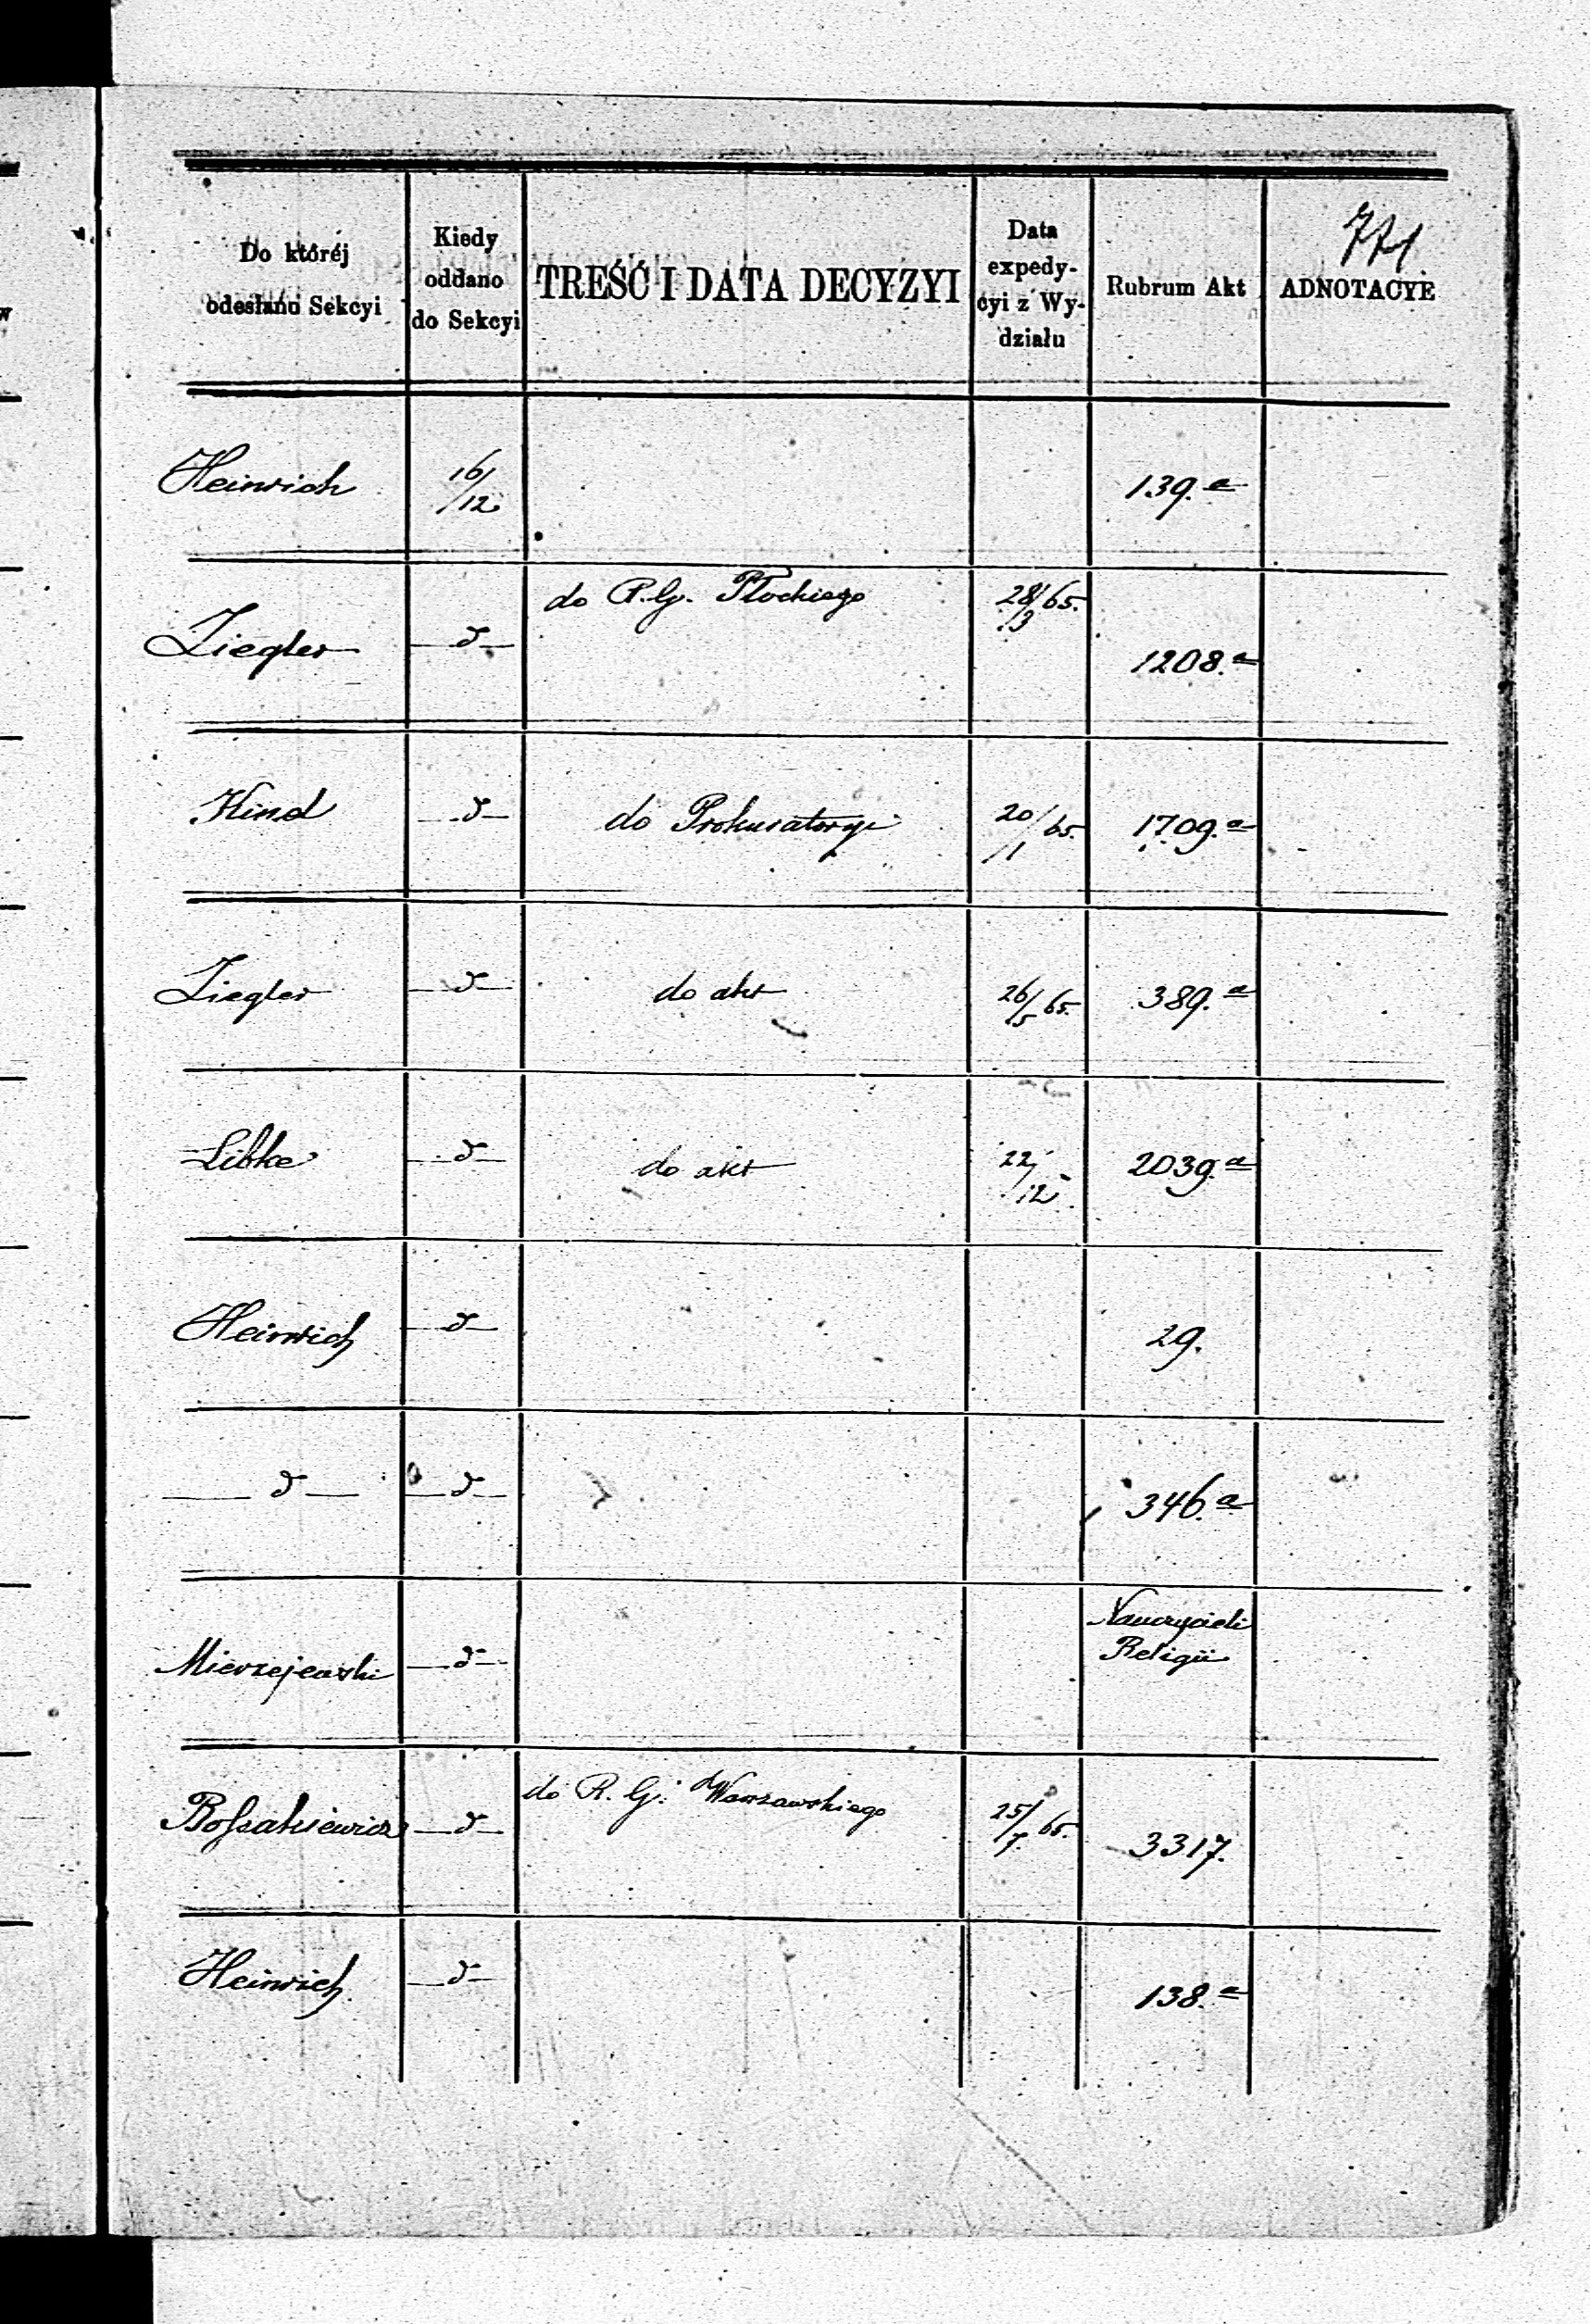 771
Do któréj odesłano Sekcyi | Kiedy oddano do Sekcyi | TREŚĆ I DATA DECYZYI | Data expedycyi z Wydziału | Rubrum Akt | ADNOTACYE
Heinrich | 16/12 | | | 139.a |
Ziegler | — d — | do R. G. Płockiego | 28/3 65. | 1208.a |
Hind | — d — | do Prokuratoryi | 20/1 65. | 1709.a |
Ziegler | — d — | do akt | 26/5 65. | 389.a |
Libke | — d — | do akt | 22/12 | 2039.a |
Heinrich | — d — | | | 29. |
— d — | — d — | | | 346.a |
Mierzejewski | — d — | | | Nauczycieli Religii |
Bossakiewicz | — d — | do R. G. Warszawskiego | 25/7 65. | 3317. |
Heinrich | — d — | | | 138.a |